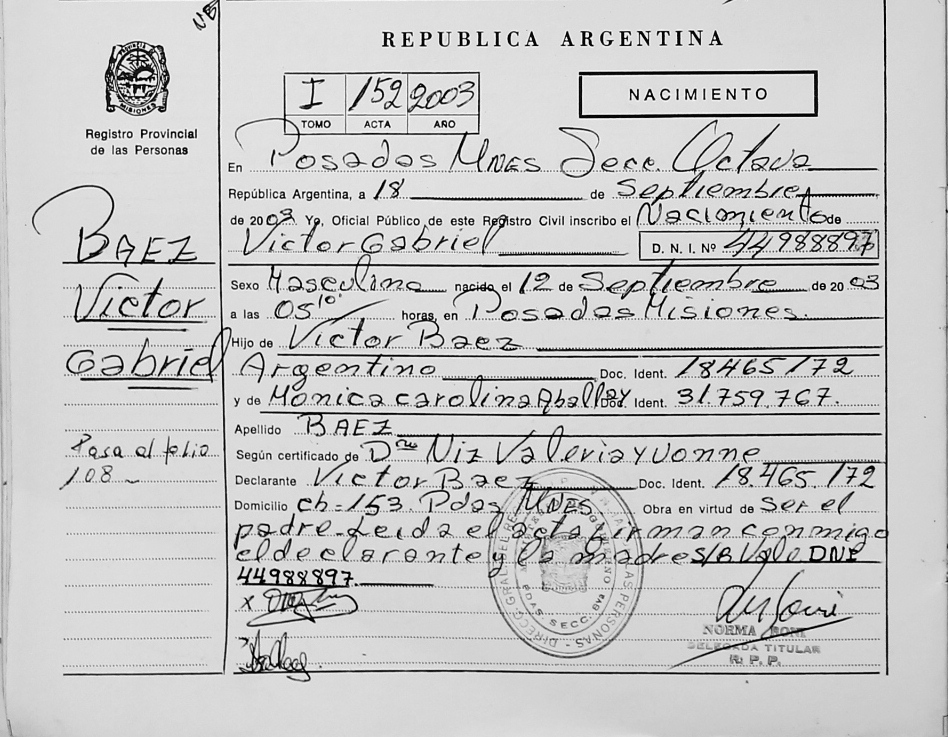 REPUBLICA ARGENTINA
I 152 2003
TOMO ACTA AÑO
NACIMIENTO
Registro Provincial
de las Personas
En Posadas MNES Secc. Octava
República Argentina, a 18 de Septiembre
de 2003 Yo, Oficial Público de este Registro Civil inscribo el Nacimiento de
Victor Gabriel D. N. I. Nº 44988897
BAEZ
Victor
Gabriel
Sexo Masculino nacido el 12 de Septiembre de 2003
a las 05 10' horas, en Posadas Misiones.
Hijo de Victor Baez
Argentino Doc. Ident. 18465172
y de Monica carolina Aballay Doc. Ident. 31.759.767.
Apellido BAEZ
Según certificado de Dra Niz Valeria Yvonne
Pasa al folio
108
Declarante Victor Baez Doc. Ident. 18.465.172
Domicilio ch-153 Pdas MNES Obra en virtud de Ser el
padre Leida el acta firman conmigo
el declarante y la madre S/R Vale DNI
44988897.
NORMA
DELEGADA TITULAR
R. P. P.